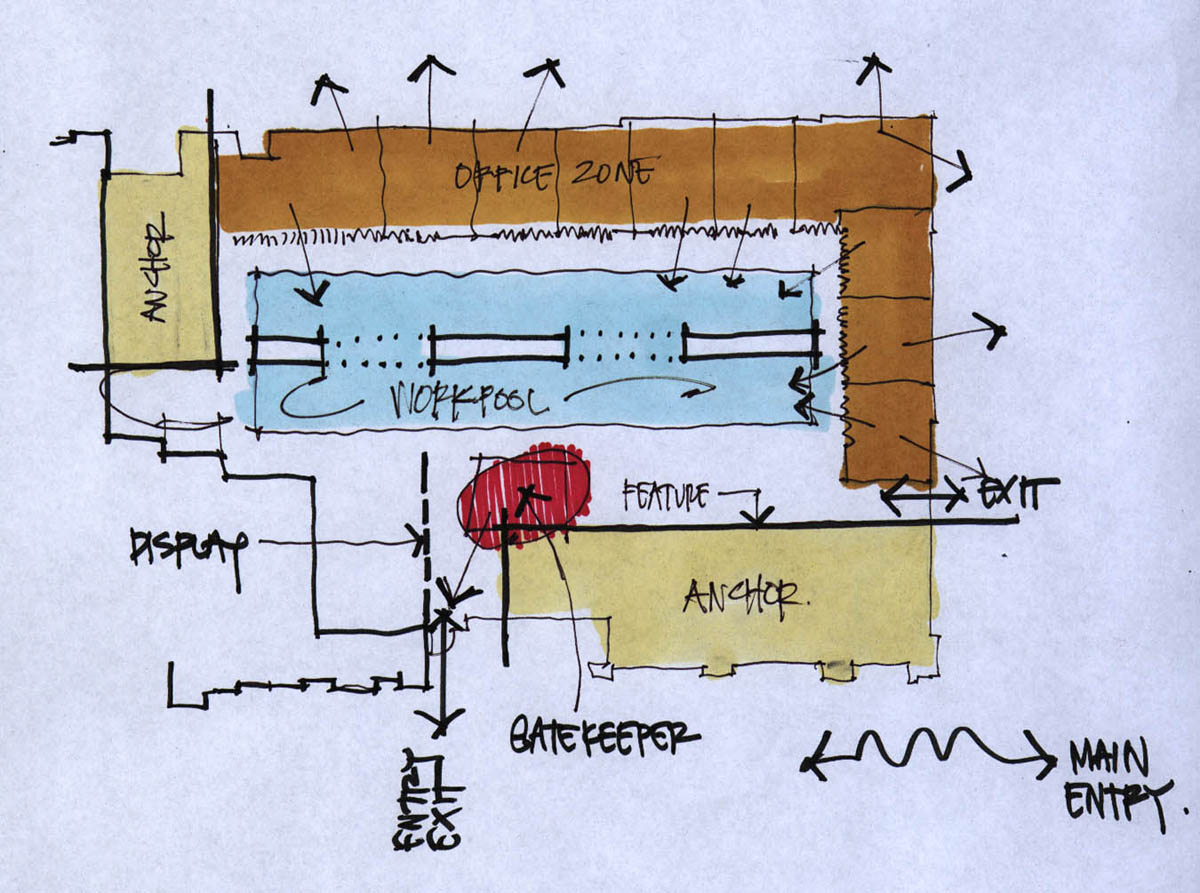 OFFICE ZONE
ANCHOR
WORKPOOL
FEATURE
EXIT
DISPLAY
ANCHOR.
GATEKEEPER
ENTRY
EXIT
MAIN
ENTRY.